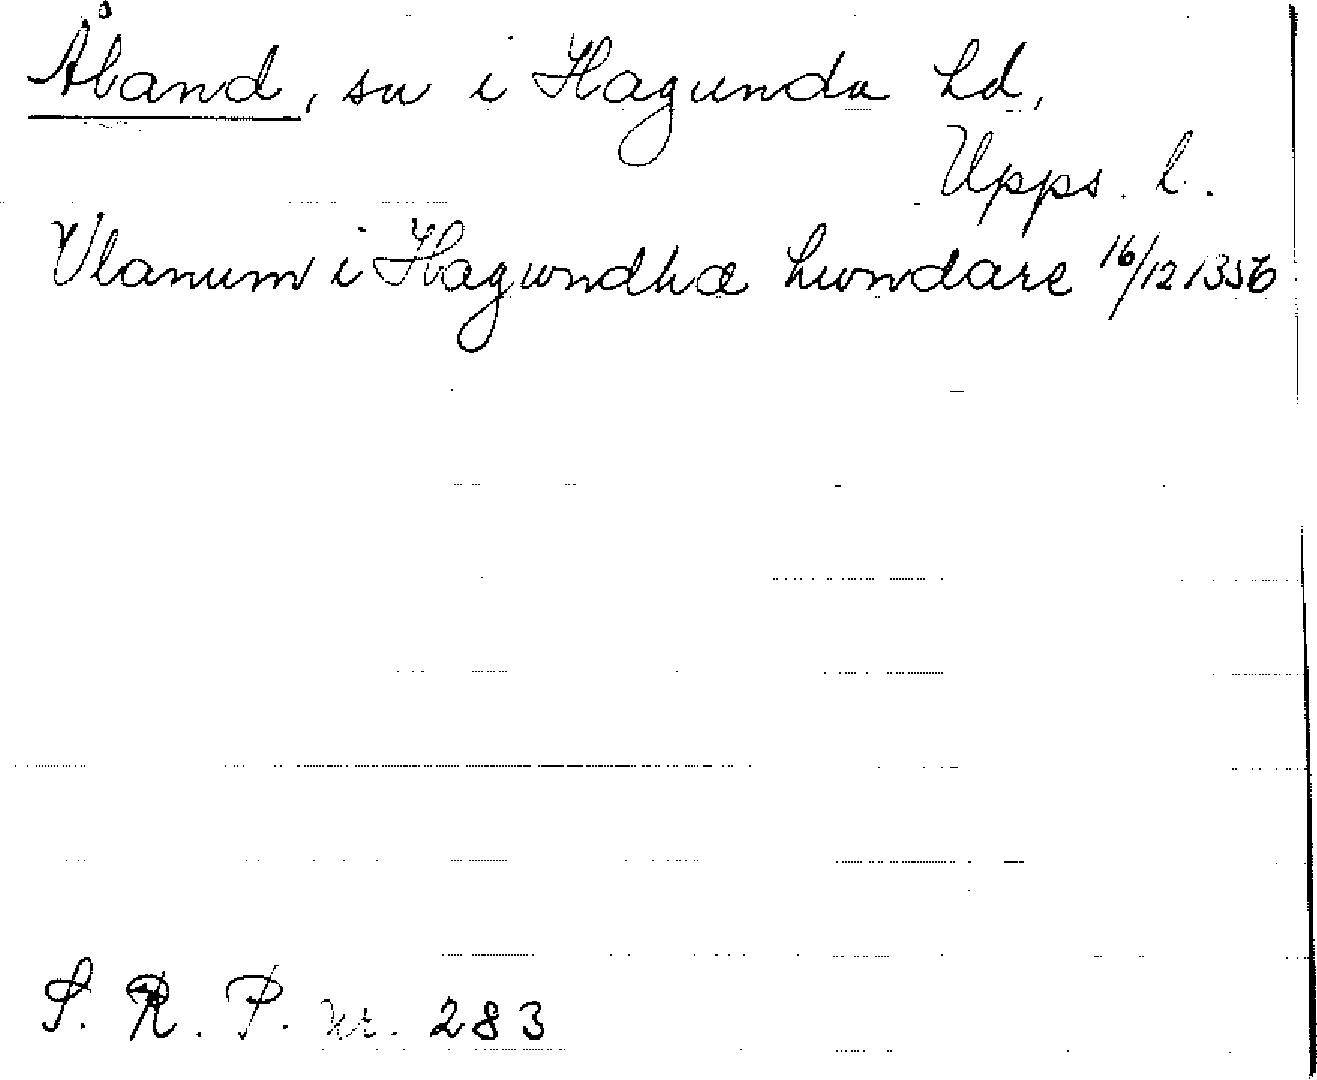 Åland, sn i Hagunda hd,
Upps. l.
Vlanum i Hagundhæ hundare 16/12 1356
S. R. P. nr. 283